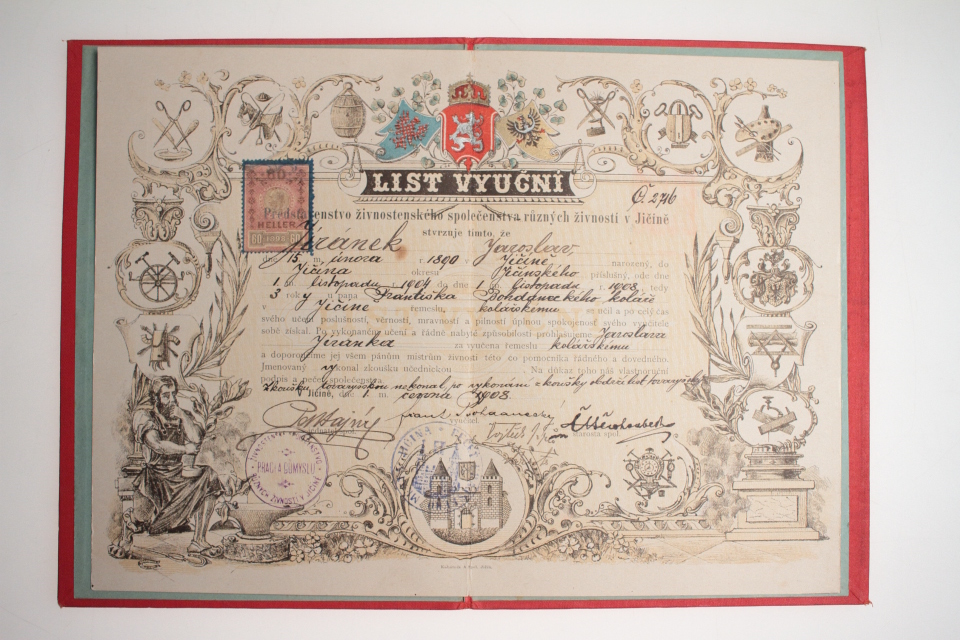 LIST VYUČNÍ
Č. 2746
60
Předst enstvo živnostenského společenstva různých živností v Jičíně
HELLER
60 60
stvrzuje tímto, že
Jiránek Jaroslav,
dne 15 m. února r. 1890 v Jičíně narozený, do
Jičína okresu Jičínského příslušný, ode dne
1 m. listopadu 1904 do dne 1 m. listopadu 1908, tedy
3 roky u pana Františka Bohdaneckého koláře
v Jičíně řemeslu kolářskému se učil a po celý čas
svého učení poslušností, věrností, mravností a pilností úplnou spokojenost svého vyučitele
sobě získal. Po vykonaném učení a řádně nabyté způsobilosti prohlašujeme Jaroslava
Jiránka za vyučena řemeslu kolářskému
a doporoučíme jej všem pánům mistrům živnosti této co pomocníka řádného a dovedného.
Jmenovaný vykonal zkoušku učednickou Na důkaz toho náš vlastnoruční
podpis a pečeť společenstva.
Zkoušku tovaryšskou nekonal, po vykonání zkoušky obdrží list tovaryšský.
V Jičíně, dne 1. června 1908
vyučitel.
starosta spol.
PRACÍ A DŮMYSLU